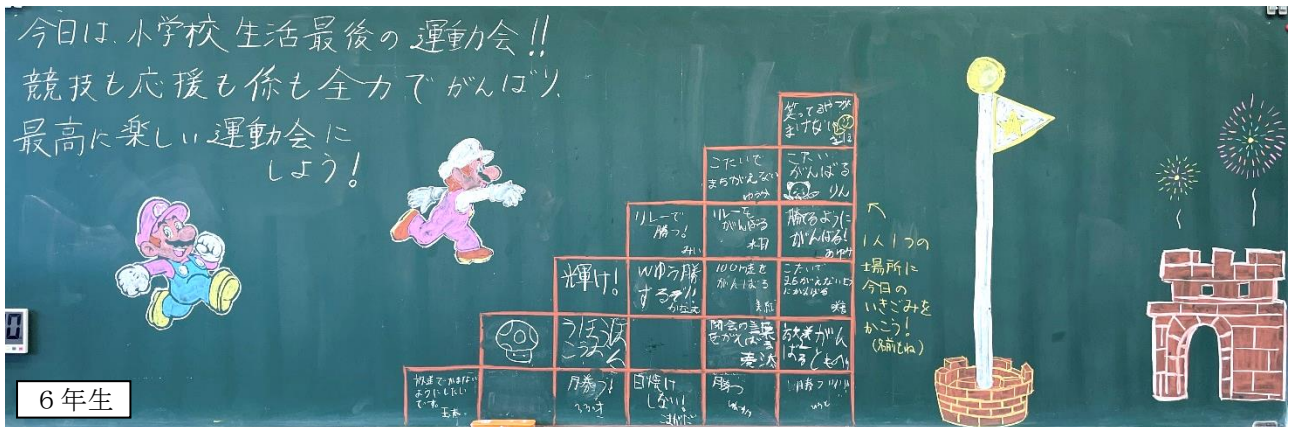 今日は、小学校生活最後の運動会!!
競技も応援も係も全力でがんばり、
最高に楽しい運動会に
しよう!
笑ってるやつが
まけない
こたいで
まちがえない
ゆうか
こたい
がんばる
りん
リレーで
勝つ!
みい
リレーを
がんばる
勝てるように
がんばる!
あゆみ
輝け!
Wゆう勝
するぞ!!
100m走を
がんばる
こたいで
まちがえないように
がんばる
閉会の言葉
をがんばる
放送がん
ばる
放送でかまない
ようにしたい
です。
勝つ!
日焼け
しない!
勝つ
勝つ!!!
1人1つの
場所に
今日の
いきごみを
かこう!
(名前もね)
6年生